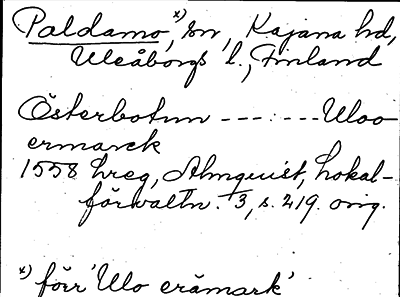 Paldamo,ˣ⁾ sn, Kajana hd,
Uleåborgs l., Finland
Österbotnn ---:--- Uloo
ermarck
1558 hreg, Almquist, Lokal-
förvaltn. I3, s. 219. orig.
ˣ⁾ förr 'Ulo erämark'